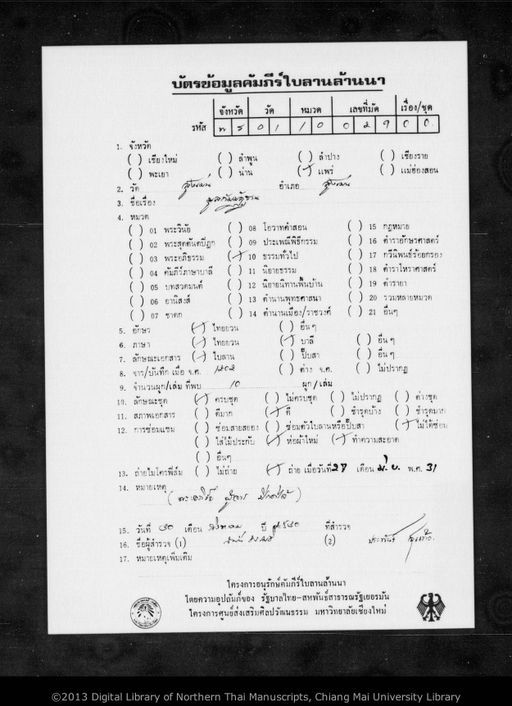 บัตรข้อมูลคัมภีร์ใบลานล้านนา
จังหวัด วัด หมวด เลขที่มัด เรื่อง/ชุด
รหัส พ ร 0 1 1 0 0 2 9 0 0
1. จังหวัด
( ) เชียงใหม่ ( ) ลำพูน ( ) ลำปาง ( ) เชียงราย
( ) พะเยา ( ) น่าน (✓) แพร่ ( ) แม่ฮ่องสอน
2. วัด สูงเม่น อำเภอ สูงเม่น
3. ชื่อเรื่อง
4. หมวด
( ) 01 พระวินัย ( ) 08 โอวาทคำสอน ( ) 15 กฎหมาย
( ) 02 พระสุตตันตปิฎก ( ) 09 ประเพณีพิธีกรรม ( ) 16 ตำราอักษรศาสตร์
( ) 03 พระอภิธรรม (✓) 10 ธรรมทั่วไป ( ) 17 กวีนิพนธ์ร้อยกรอง
( ) 04 คัมภีร์ภาษาบาลี ( ) 11 นิยายธรรม ( ) 18 ตำราโหราศาสตร์
( ) 05 บทสวดมนต์ ( ) 12 นิยายนิทานพื้นบ้าน ( ) 19 ตำรายา
( ) 06 อานิสงส์ ( ) 13 ตำนานพุทธศาสนา ( ) 20 รวมหลายหมวด
( ) 07 ชาดก ( ) 14 ตำนานเมือง/ราชวงศ์ ( ) 21 อื่นๆ
5. อักษร (✓) ไทยยวน ( ) อื่นๆ
6. ภาษา (✓) ไทยยวน (✓) บาลี ( ) อื่นๆ
7. ลักษณะเอกสาร (✓) ใบลาน ( ) ปั๊บสา ( ) อื่นๆ
8. จาร/บันทึก เมื่อ จ.ศ. 1202 ( ) ต่าง จ.ศ. ( ) ไม่ปรากฏ
9. จำนวนผูก/เล่ม ที่พบ 10 ผูก/เล่ม
10. ลักษณะชุด (✓) ครบชุด ( ) ไม่ครบชุด ( ) ไม่ปรากฏ ( ) ต่างชุด
11. สภาพเอกสาร ( ) ดีมาก (✓) ดี ( ) ชำรุดบ้าง ( ) ชำรุดมาก
12. การซ่อมแซม ( ) ซ่อมสายสยอง ( ) ซ่อมตัวใบลานหรือปั๊บสา (✓) ไม่ได้ซ่อม
( ) ใส่ไม้ประกับ (✓) ห่อผ้าใหม่ (✓) ทำความสะอาด
( ) อื่นๆ
13. ถ่ายไมโครฟิล์ม ( ) ไม่ถ่าย (✓) ถ่าย เมื่อวันที่ 27 เดือน มิ.ย. พ.ศ. 31
14. หมายเหตุ
15. วันที่ 30 เดือน สิงหาคม ปี 2530 ที่สำรวจ
16. ชื่อผู้สำรวจ (1) (2)
17. หมายเหตุเพิ่มเติม
โครงการอนุรักษ์คัมภีร์ใบลานล้านนา
โดยความอุปถัมภ์ของ รัฐบาลไทย-สหพันธ์สาธารณรัฐเยอรมัน
โครงการศูนย์ส่งเสริมศิลปวัฒนธรรม มหาวิทยาลัยเชียงใหม่
©2013 Digital Library of Northern Thai Manuscripts, Chiang Mai University Library